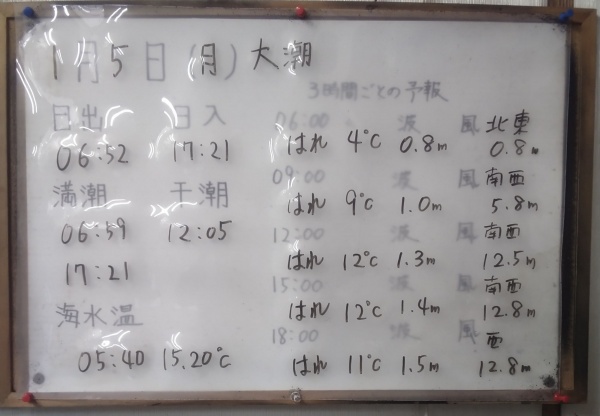 1月5日(月)大潮
3時間ごとの予報
日出 日入
06:52 17:21
満潮 干潮
06:59 12:05
17:21
海水温
05:40 15.20℃
06:00 波 風 北東
はれ 4℃ 0.8m 0.8m
09:00 波 風 南西
はれ 9℃ 1.0m 5.8m
12:00 波 風 南西
はれ 12℃ 1.3m 12.5m
15:00 波 風 南西
はれ 12℃ 1.4m 12.8m
18:00 波 風 西
はれ 11℃ 1.5m 12.8m